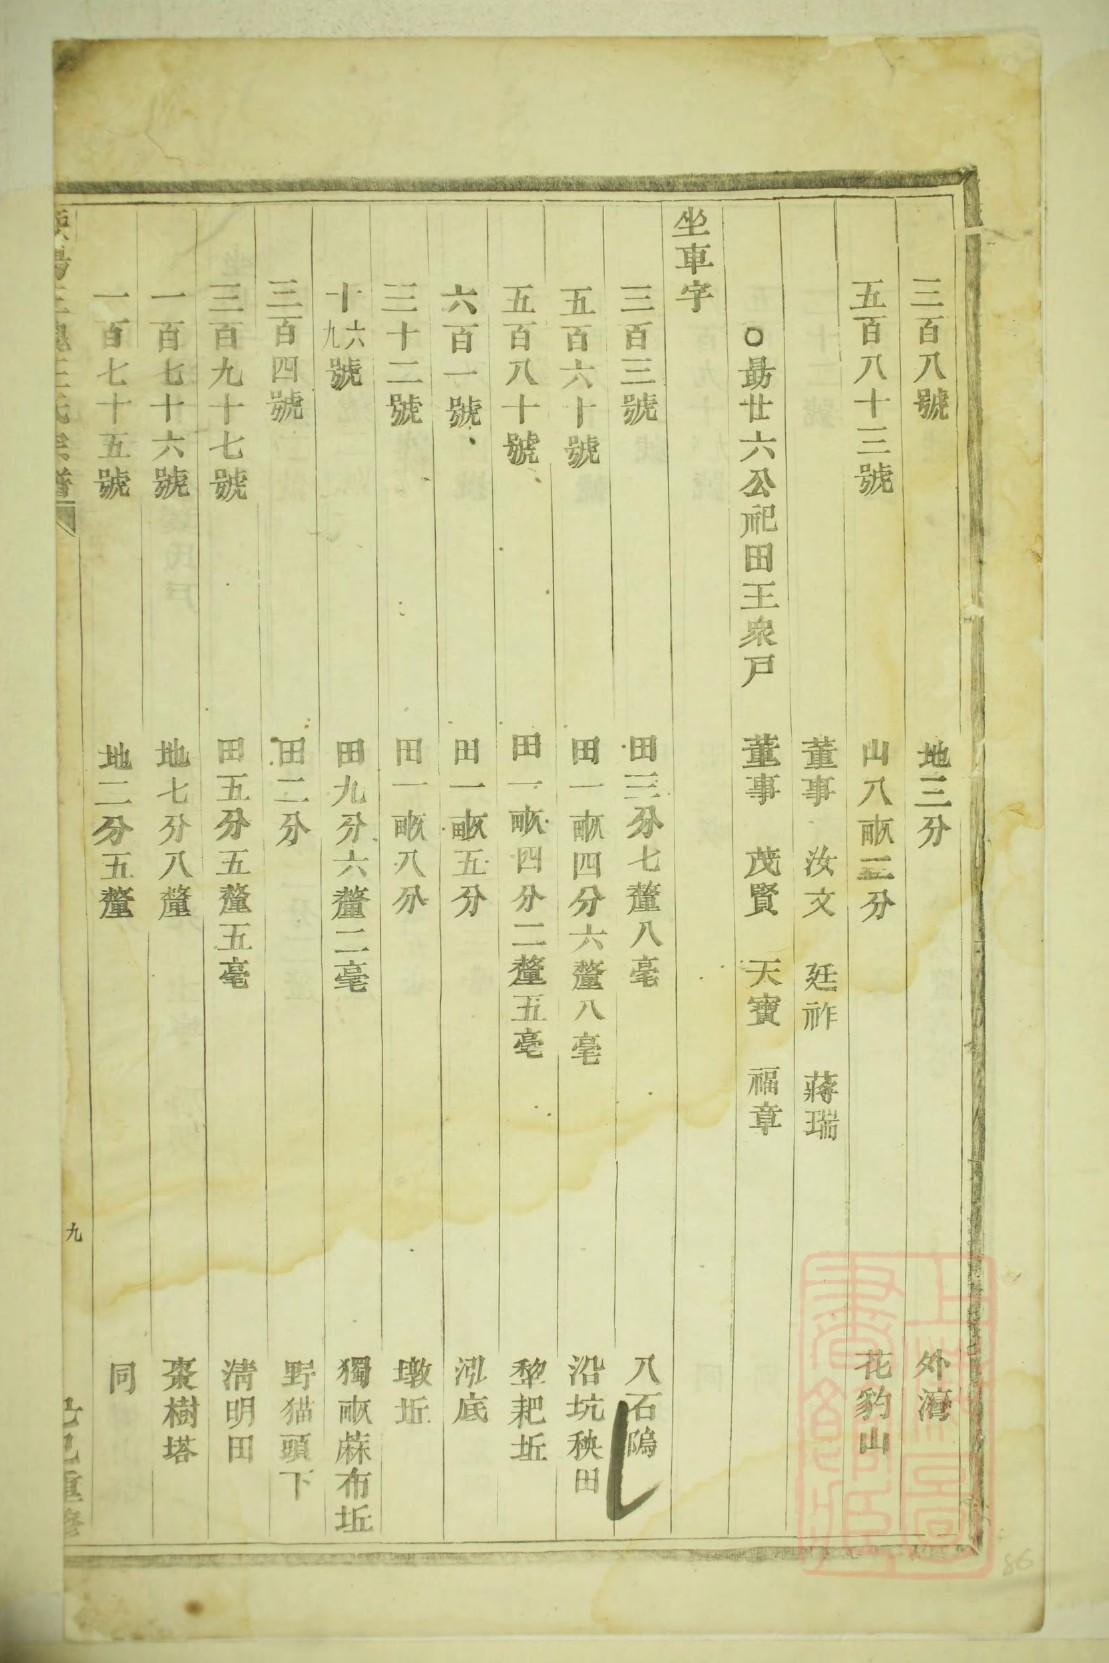 三百八號 地三分 外灣
五百八十三號 山八畝三分 花豹山
董事 汝文 廷祚 蔣瑞
○勗廿六公祀田王衆戸 董事 茂賢 天寶 福章
坐車字
三百三號 田三分七釐八毫 八石隖
五百六十號 田一畝四分六釐八毫 沿坑秧田
五百八十號 田一畝四分二釐五毫 犂耙坵
六百一號 田一畝五分 泓底
三十二號 田一畝八分 墩坵
十六九號 田九分六釐二毫 獨畝蔴布坵
三百四號 田二分 野猫頭下
三百九十七號 田五分五釐五毫 清明田
一百七十六號 地七分八釐 棗樹塔
一百七十五號 地二分五釐 同
王氏宗譜 九 己重修
86